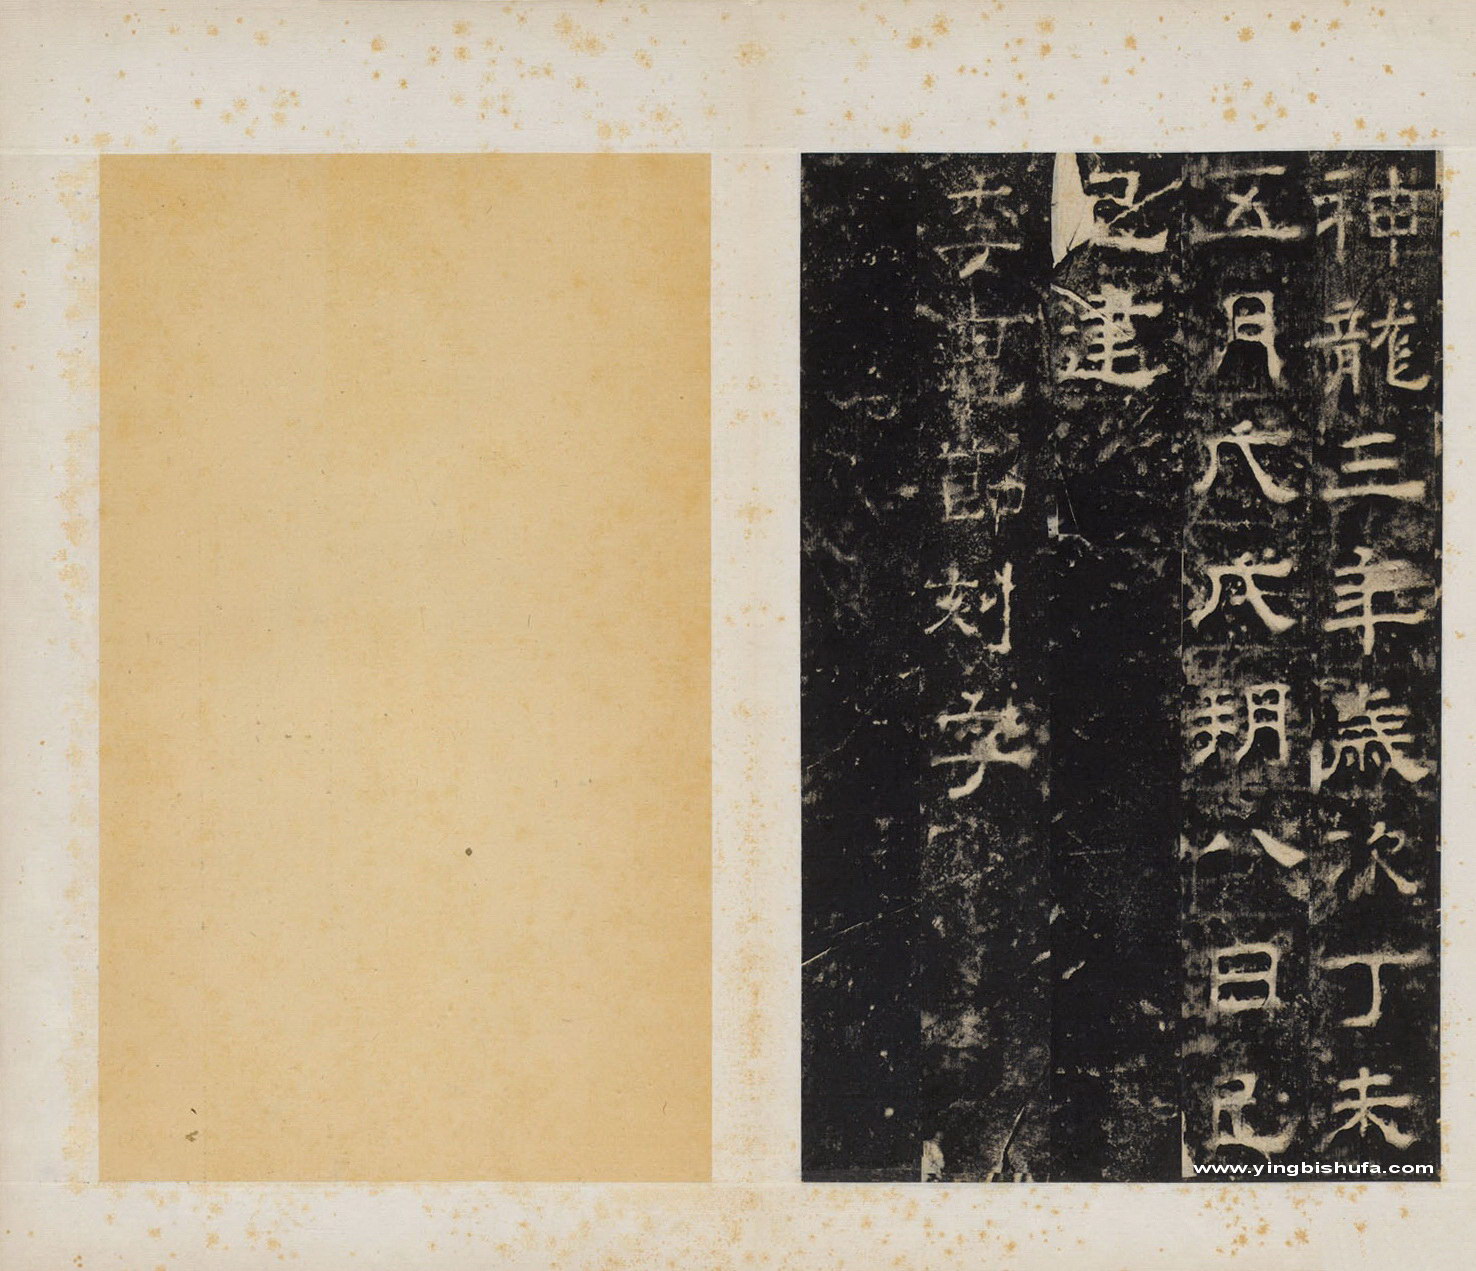 神龍三年歲次丁未
五月戊戌朔八日己
巳建
李節刻字
www.yingbishufa.com